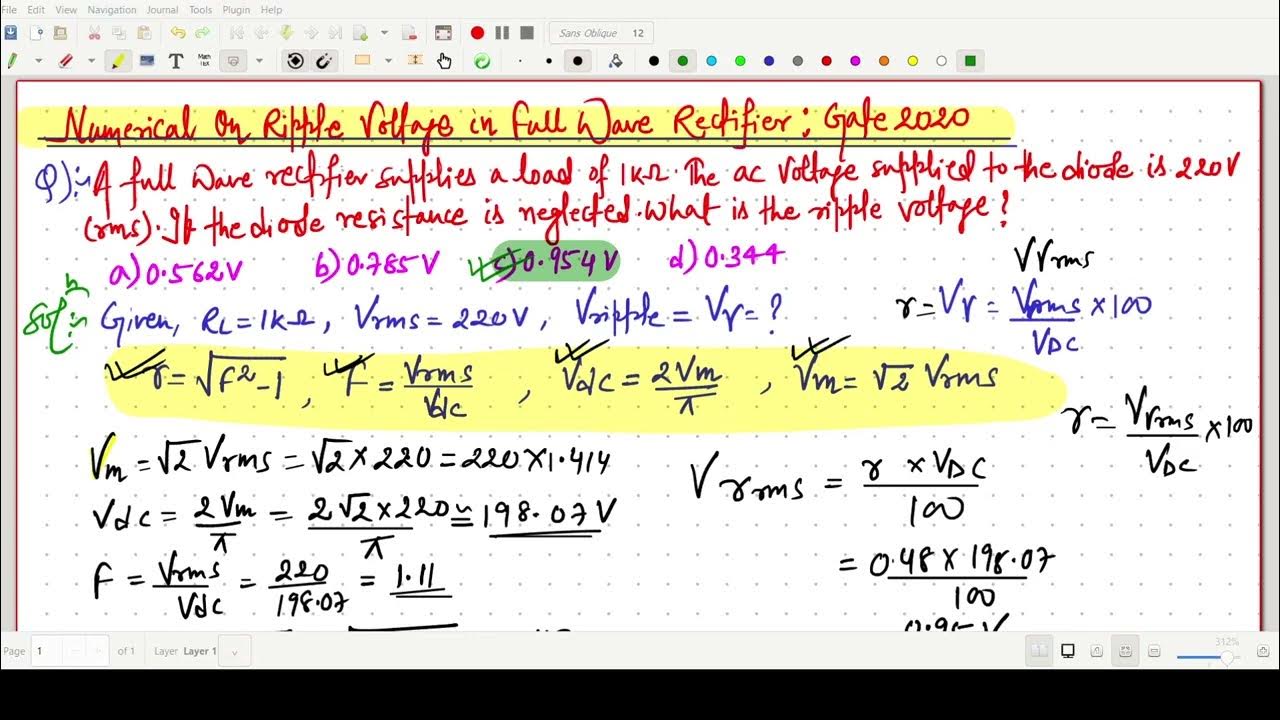 File Edit View Navigation Journal Tools Plugin Help
Sans Oblique 12
Numerical On Ripple Voltage in Full Wave Rectifier: Gate 2020
Q):→ A full wave rectifier supplies a load of 1kΩ. The ac voltage supplied to the diode is 220V
(rms). If the diode resistance is neglected. What is the ripple voltage?
a) 0.562V b) 0.785V c) 0.954V d) 0.344
Vγrms
Solⁿ:→ Given, RL = 1kΩ, Vrms = 220V, Vripple = Vγ = ?
γ = Vγ = Vrms/VDC × 100
γ = √F²-1, F = Vrms/Vdc, Vdc = 2Vm/π, Vm = √2 Vrms
γ = Vγrms/VDC × 100
Vm = √2 Vrms = √2 × 220 = 220 × 1.414
Vγrms = γ × VDC/100
Vdc = 2Vm/π = 2√2 × 220/π ≅ 198.07V
= 0.48 × 198.07/100
F = Vrms/Vdc = 220/198.07 = 1.11
Page 1 of 1 Layer Layer 1
312%